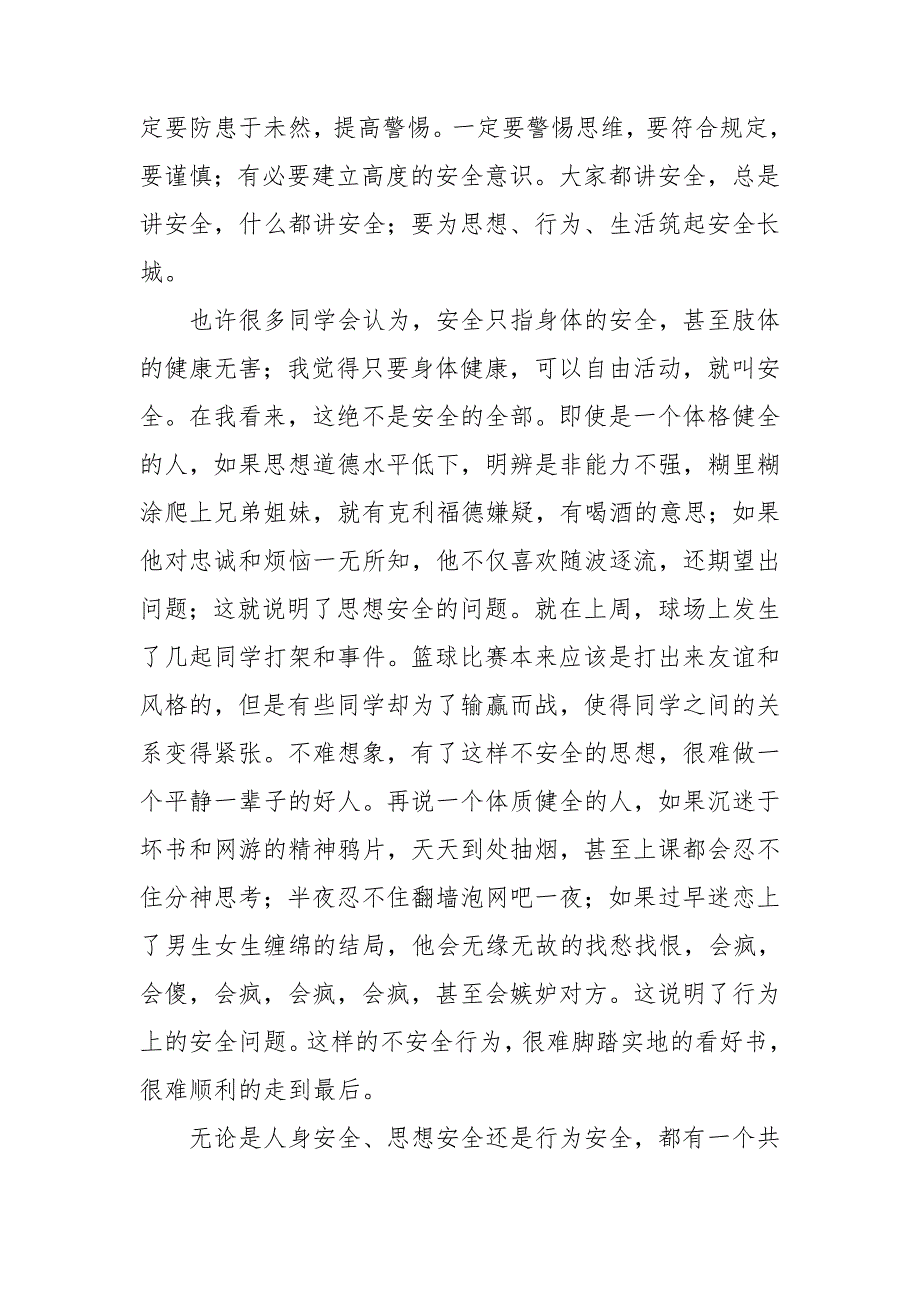 定要防患于未然，提高警惕。一定要警惕思维，要符合规定，
要谨慎；有必要建立高度的安全意识。大家都讲安全，总是
讲安全，什么都讲安全；要为思想、行为、生活筑起安全长
城。
也许很多同学会认为，安全只指身体的安全，甚至肢体
的健康无害；我觉得只要身体健康，可以自由活动，就叫安
全。在我看来，这绝不是安全的全部。即使是一个体格健全
的人，如果思想道德水平低下，明辨是非能力不强，糊里糊
涂爬上兄弟姐妹，就有克利福德嫌疑，有喝酒的意思；如果
他对忠诚和烦恼一无所知，他不仅喜欢随波逐流，还期望出
问题；这就说明了思想安全的问题。就在上周，球场上发生
了几起同学打架和事件。篮球比赛本来应该是打出来友谊和
风格的，但是有些同学却为了输赢而战，使得同学之间的关
系变得紧张。不难想象，有了这样不安全的思想，很难做一
个平静一辈子的好人。再说一个体质健全的人，如果沉迷于
坏书和网游的精神鸦片，天天到处抽烟，甚至上课都会忍不
住分神思考；半夜忍不住翻墙泡网吧一夜；如果过早迷恋上
了男生女生缠绵的结局，他会无缘无故的找愁找恨，会疯，
会傻，会疯，会疯，会疯，甚至会嫉妒对方。这说明了行为
上的安全问题。这样的不安全行为，很难脚踏实地的看好书，
很难顺利的走到最后。
无论是人身安全、思想安全还是行为安全，都有一个共